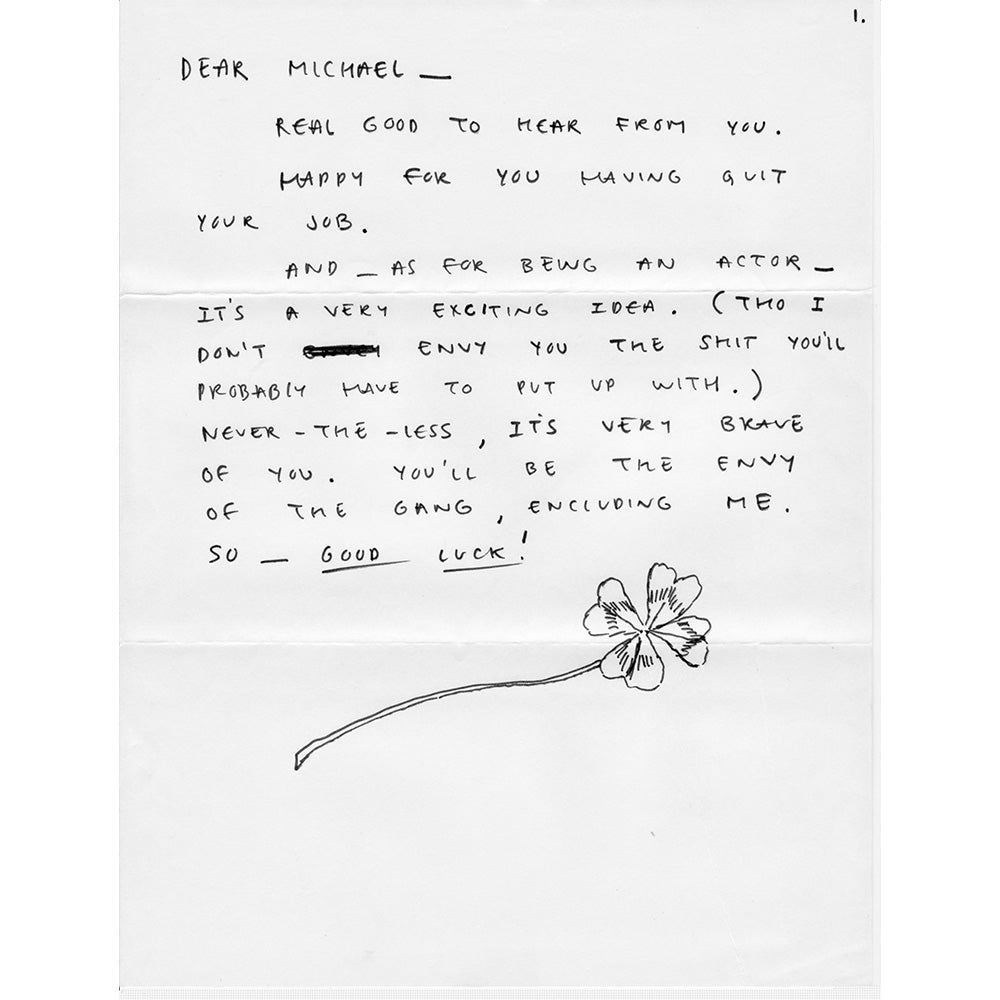 1.
DEAR MICHAEL —
REAL GOOD TO HEAR FROM YOU.
HAPPY FOR YOU HAVING QUIT
YOUR JOB.
AND — AS FOR BEING AN ACTOR —
IT'S A VERY EXCITING IDEA. (THO I
DON'T ENVY YOU THE SHIT YOU'LL
PROBABLY HAVE TO PUT UP WITH.)
NEVER-THE-LESS, IT'S VERY BRAVE
OF YOU. YOU'LL BE THE ENVY
OF THE GANG, ENCLUDING ME.
SO — GOOD LUCK!